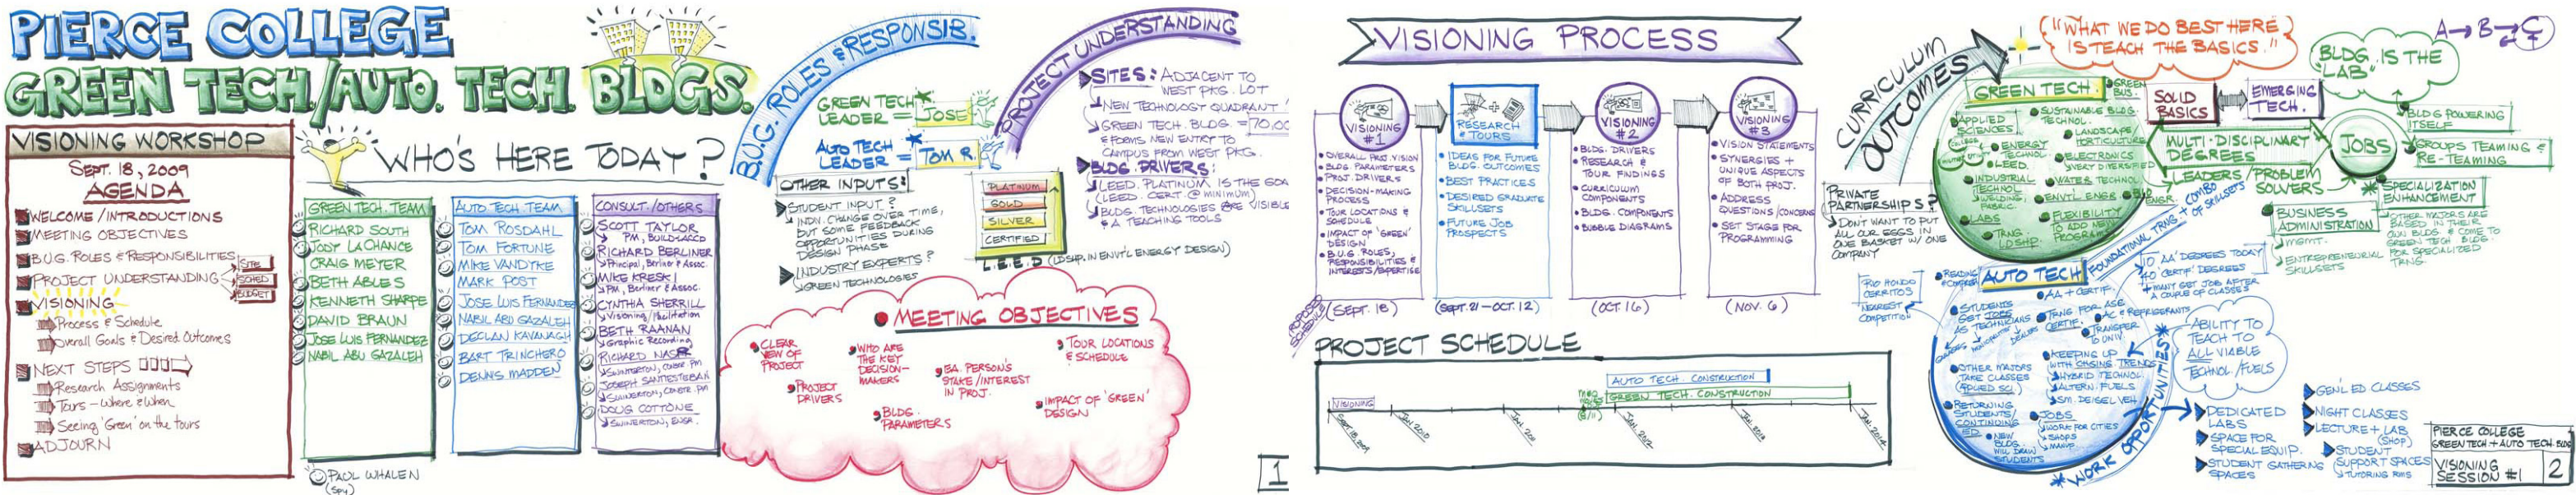 PIERCE COLLEGE
GREEN TECH./AUTO. TECH. BLDGS.
VISIONING WORKSHOP
SEPT. 18, 2009
AGENDA
WELCOME/INTRODUCTIONS
MEETING OBJECTIVES
B.U.G. ROLES & RESPONSIBILITIES
PROJECT UNDERSTANDING
SITE
SCHED
BUDGET
VISIONING
Process & Schedule
Overall Goals & Desired Outcomes
NEXT STEPS
Research Assignments
Tours - Where & When
Seeing 'Green' on the tours
ADJOURN
WHO'S HERE TODAY?
GREEN TECH. TEAM
RICHARD SOUTH
JODY LA CHANCE
CRAIG MEYER
BETH ABLES
KENNETH SHARPE
DAVID BRAUN
JOSE LUIS FERNANDEZ
NABIL ABU GAZALEH
PAUL WHALEN
(SPY)
AUTO TECH TEAM
TOM ROSDAHL
TOM FORTUNE
MIKE VANDYKE
MARK POST
JOSE LUIS FERNANDEZ
NABIL ABU GAZALEH
DECLAN KAVANAGH
BART TRINCHERO
DENNIS MADDEN
CONSULT./OTHERS
SCOTT TAYLOR
PM, BUILD-LACCD
RICHARD BERLINER
Principal, Berliner & Assoc.
MIKE KRESKI
PM, Berliner & Assoc.
CYNTHIA SHERRILL
Visioning/Facilitation
BETH RAANAN
Graphic Recording
RICHARD NASR
SWINERTON, CONSTR. PM
JOSEPH SANTIESTEBAN
SWINERTON, CONSTR. PM
DOUG COTTONE
SWINERTON, ENGR.
B.U.G. ROLES & RESPONSIB.
GREEN TECH
LEADER = JOSE
AUTO TECH
LEADER = TOM R.
OTHER INPUTS:
STUDENT INPUT?
INDIV. CHANGE OVER TIME,
BUT SOME FEEDBACK
OPPORTUNITIES DURING
DESIGN PHASE
INDUSTRY EXPERTS?
GREEN TECHNOLOGIES
PROJECT UNDERSTANDING
SITES: ADJACENT TO
WEST PKG. LOT
NEW TECHNOLOGY QUADRANT
GREEN TECH. BLDG = 70,00
& FORMS NEW ENTRY TO
CAMPUS FROM WEST PKG.
BLDG. DRIVERS:
LEED. PLATINUM IS THE GOA
(LEED. CERT. @ MINIMUM)
BLDG. TECHNOLOGIES ARE VISIBLE
& A TEACHING TOOLS
PLATINUM
GOLD
SILVER
CERTIFIED
L.E.E.D (LDSHP. IN ENVT'L ENERGY DESIGN)
MEETING OBJECTIVES
CLEAR
VIEW OF
PROJECT
PROJECT
DRIVERS
WHO ARE
THE KEY
DECISION-
MAKERS
BLDG.
PARAMETERS
EA. PERSON'S
STAKE/INTEREST
IN PROJ.
TOUR LOCATIONS
& SCHEDULE
IMPACT OF 'GREEN'
DESIGN
1
VISIONING PROCESS
VISIONING
#1
OVERALL PROJ. VISION
BLDG PARAMETERS
PROJ. DRIVERS
DECISION-MAKING
PROCESS
TOUR LOCATIONS &
SCHEDULE
IMPACT OF 'GREEN'
DESIGN
B.U.G. ROLES,
RESPONSIBILITIES &
INTERESTS/EXPERTISE
PROPOSED
SCHEDULE
(SEPT. 18)
RESEARCH
& TOURS
IDEAS FOR FUTURE
BLDG. OUTCOMES
BEST PRACTICES
DESIRED GRADUATE
SKILLSETS
FUTURE JOB
PROSPECTS
(SEPT. 21-OCT. 12)
VISIONING
#2
BLDG. DRIVERS
RESEARCH &
TOUR FINDINGS
CURRICULUM
COMPONENTS
BLDG. COMPONENTS
BUBBLE DIAGRAMS
(OCT. 16)
VISIONING
#3
VISION STATEMENTS
SYNERGIES +
UNIQUE ASPECTS
OF BOTH PROJ.
ADDRESS
QUESTIONS/CONCERNS
SET STAGE FOR
PROGRAMMING
(NOV. 6)
PROJECT SCHEDULE
AUTO TECH. CONSTRUCTION
GREEN TECH. CONSTRUCTION
VISIONING
SEPT 18, 2009
JAN. 2010
JAN. 2011
JAN. 2012
JAN. 2013
JAN. 2014
CURRICULUM
OUTCOMES
"WHAT WE DO BEST HERE
IS TEACH THE BASICS."
A → B → C
BLDG. IS THE
"LAB"
GREEN TECH
GREEN
BUS.
SUSTAINABLE BLDG.
TECHNOL.
APPLIED
SCIENCES
LANDSCAPE
HORTICULTURE
ENERGY
TECHNOL.
LEED
ELECTRONICS
INDUSTRIAL
TECHNOL.
WELDING,
FABRIC.
WATER TECHNOL
ENVTL. ENGR
LABS
FLEXIBILITY
TO ADD NEW
PROGRAMS
TRNG.
LDSHP.
SOLID
BASICS
EMERGING
TECH.
MULTI-DISCIPLINARY
DEGREES
LEADERS/PROBLEM
SOLVERS
JOBS
BLDG POWERING
ITSELF
GROUPS TEAMING &
RE-TEAMING
SPECIALIZATION
ENHANCEMENT
OTHER MAJORS ARE
BASED IN THEIR
OWN BLDG. & COME TO
GREEN TECH BLDG.
FOR SPECIALIZED
TRNG.
BUSINESS
ADMINISTRATION
MGMT.
ENTREPRENEURIAL
SKILLSETS
PRIVATE
PARTNERSHIPS?
DON'T WANT TO PUT
ALL OUR EGGS IN
ONE BASKET W/ ONE
COMPANY
RIO HONDO
CERRITOS
NEAREST
COMPETITION
FOUNDATIONAL TRNG + COMBO
OF SKILLSETS
AUTO TECH
AA + CERTIF.
10 'AA' DEGREES TODAY
40 'CERTIF' DEGREES
MANY GET JOB AFTER
A COUPLE OF CLASSES
STUDENTS
GET JOBS
AS TECHNICIANS
TRNG FOR ASE
CERTIF.
AC & REFRIGERANTS
TRANSFER
TO UNIV.
KEEPING UP
WITH CHGING TRENDS
HYBRID TECHNOL.
ALTERN. FUELS
SM. DEISEL VEH
OTHER MAJORS
TAKE CLASSES
(APPLIED SCI)
RETURNING
STUDENTS/
CONTINUING
ED
NEW
BLDG.
WILL DRAW
STUDENTS
JOBS
WORK FOR CITIES
SHOPS
MANUF.
WORK OPPORTUNITIES
ABILITY TO
TEACH TO
ALL VIABLE
TECHNOL/FUELS
DEDICATED
LABS
SPACE FOR
SPECIAL EQUIP.
STUDENT GATHERING
SPACES
GEN'L ED CLASSES
NIGHT CLASSES
LECTURE + LAB
(SHOP)
STUDENT
SUPPORT SPACES
TUTORING RMS
PIERCE COLLEGE
GREEN TECH + AUTO TECH. BLDG
VISIONING
SESSION #1
2